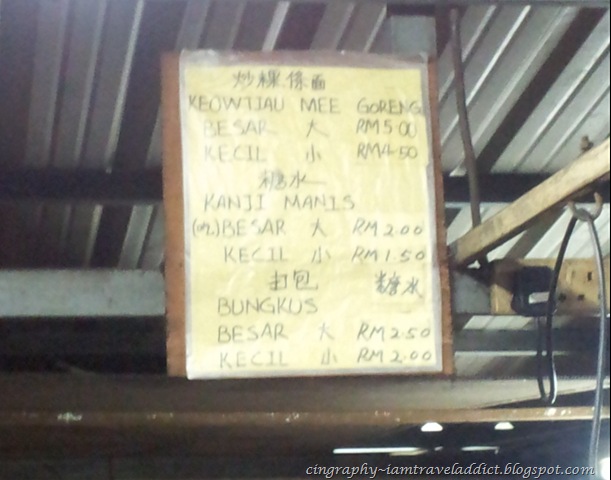 炒粿條面
KEOWTIAU MEE GORENG
BESAR 大 RM5.00
KECIL 小 RM4.50
糖水
KANJI MANIS
(吃) BESAR 大 RM 2.00
KECIL 小 RM 1.50
打包 糖水
BUNGKUS
BESAR 大 RM 2.50
KECIL 小 RM 2.00
cingraphy-iamtraveladdict.blogspot.com